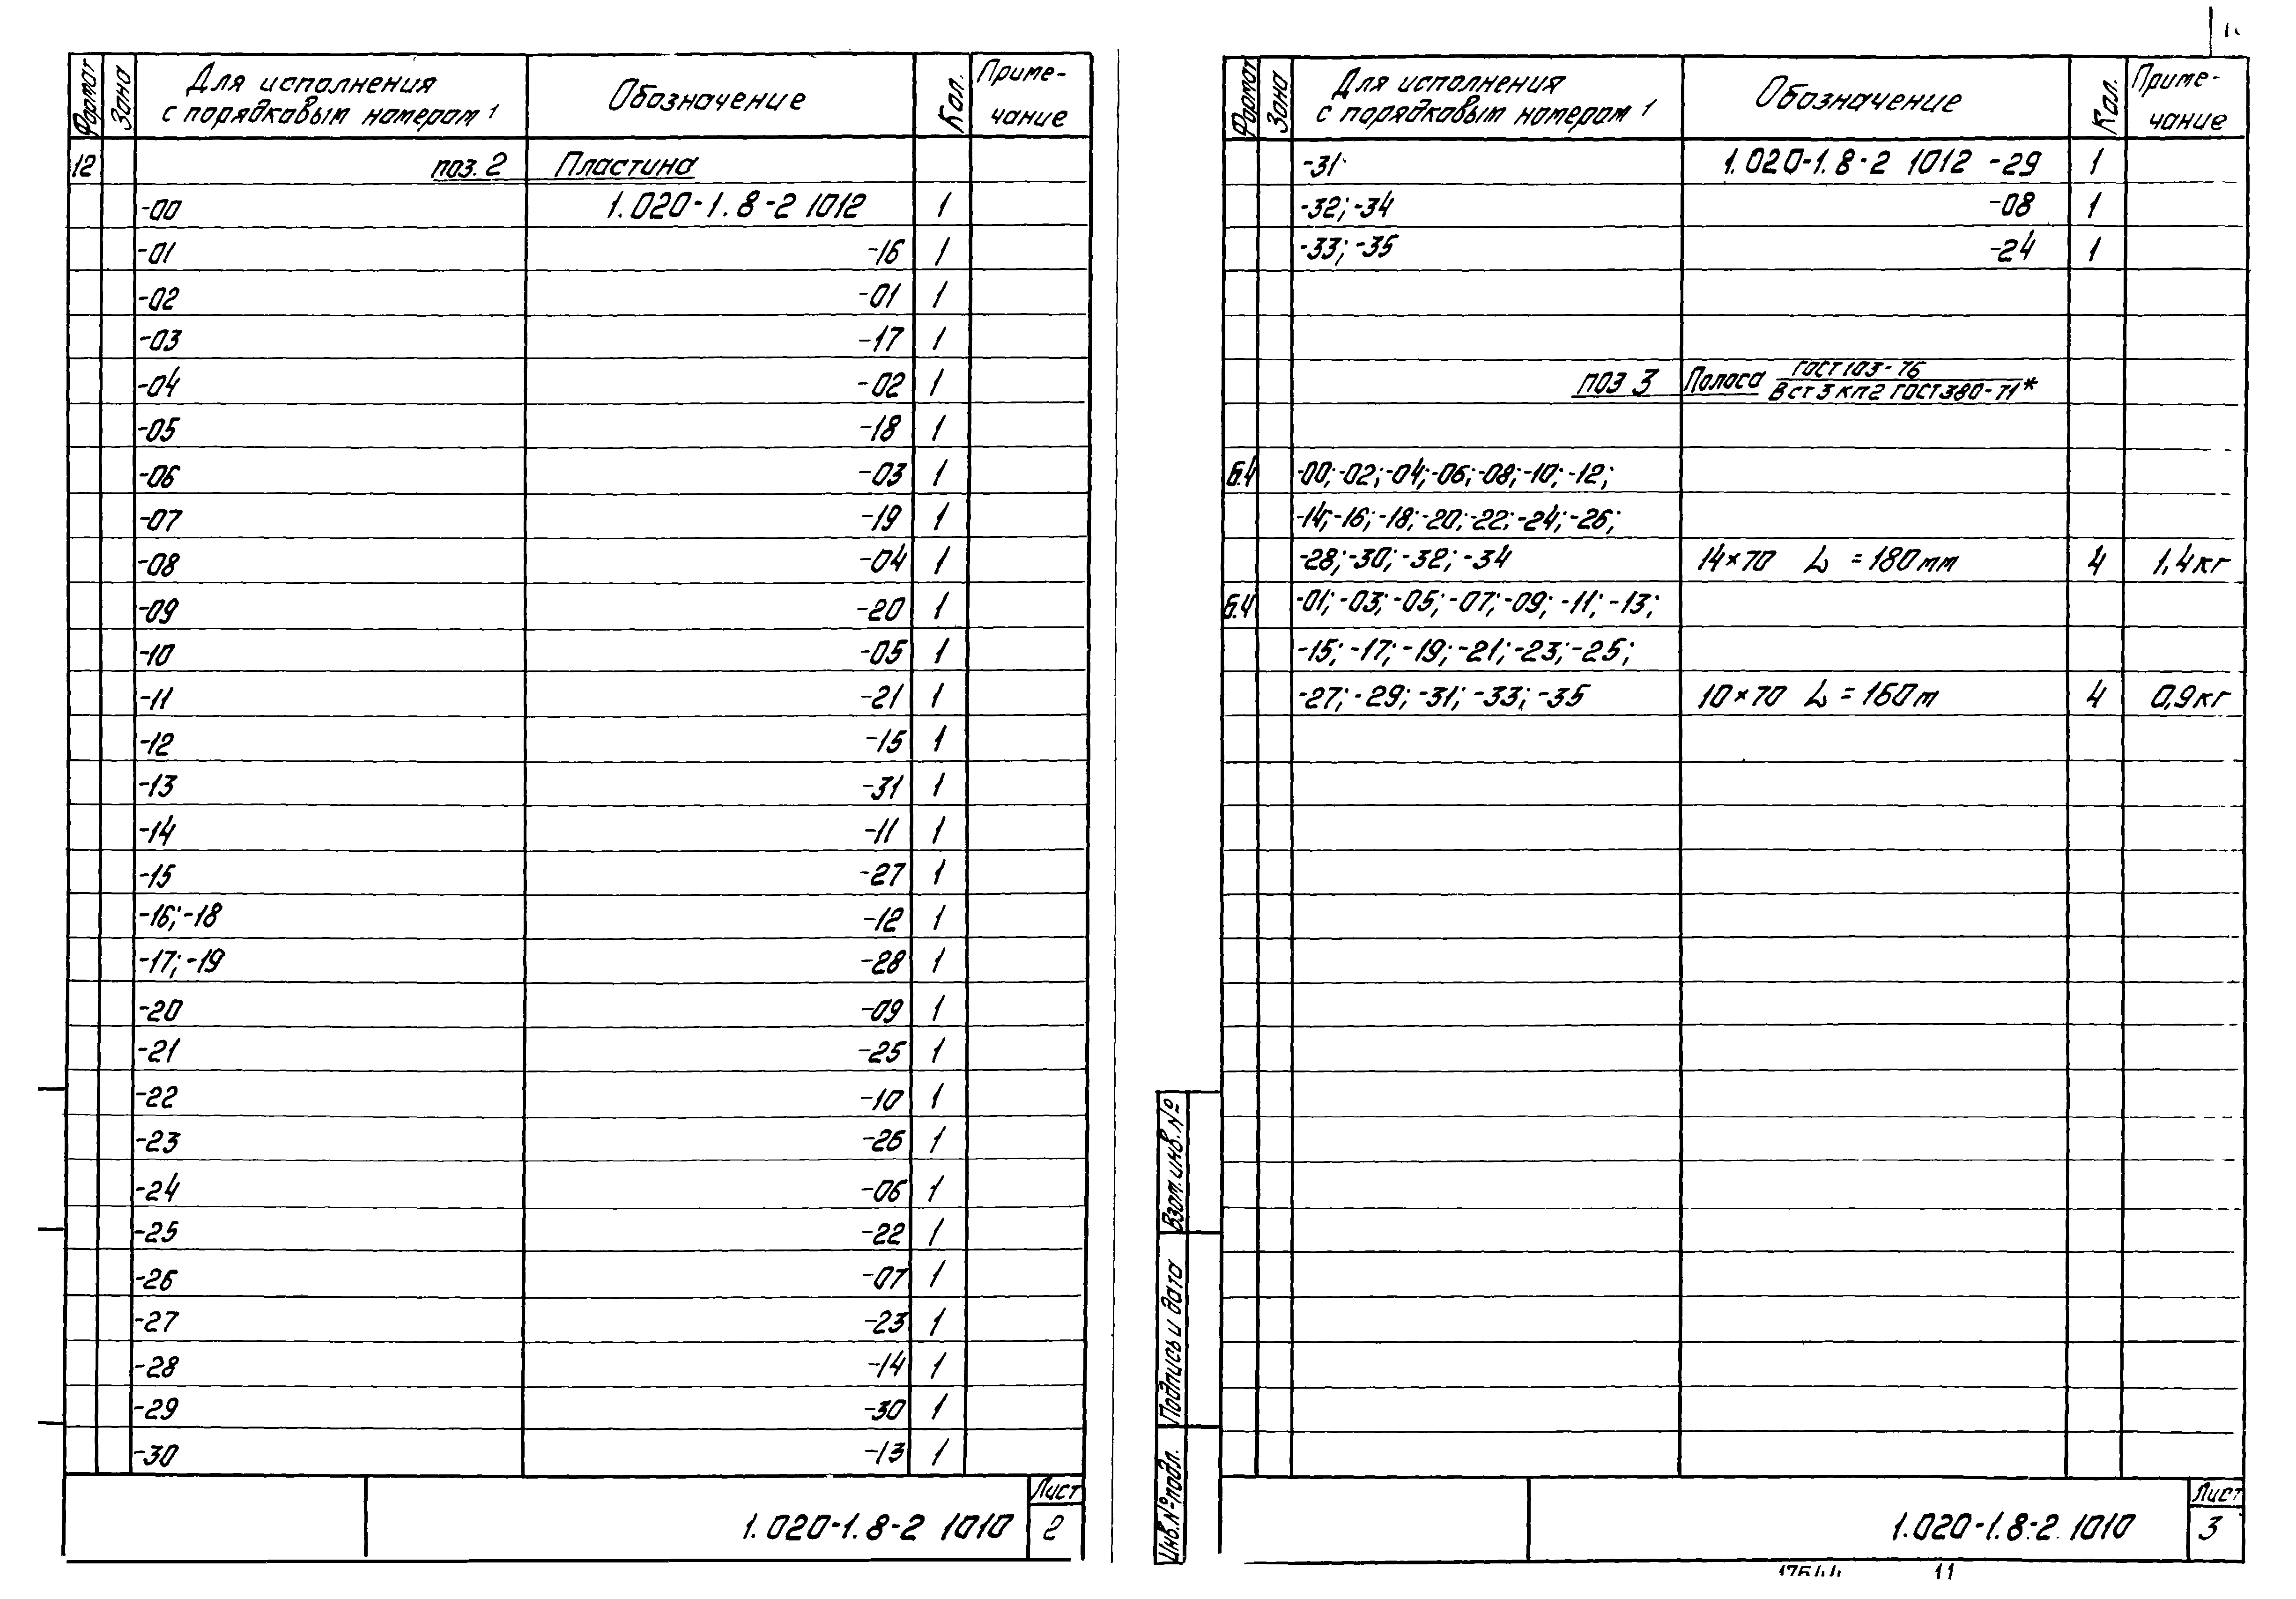 Формат Зона Для исполнения с порядковым номером 1 Обозначение Кол. Приме-чание
12 поз. 2 Пластина
-00 1.020-1.8-2 1012 1
-01 -16 1
-02 -01 1
-03 -17 1
-04 -02 1
-05 -18 1
-06 -03 1
-07 -19 1
-08 -04 1
-09 -20 1
-10 -05 1
-11 -21 1
-12 -15 1
-13 -31 1
-14 -11 1
-15 -27 1
-16; -18 -12 1
-17; -19 -28 1
-20 -09 1
-21 -25 1
-22 -10 1
-23 -26 1
-24 -06 1
-25 -22 1
-26 -07 1
-27 -23 1
-28 -14 1
-29 -30 1
-30 -13 1
1.020-1.8-2 1010 Лист 2
Формат Зона Для исполнения с порядковым номером 1 Обозначение Кол. Приме-чание
-31 1.020-1.8-2 1012 -29 1
-32; -34 -08 1
-33; -35 -24 1
поз 3 Полоса ГОСТ 103-76
В ст 3 кп2 ГОСТ 380-71*
Б.4 -00; -02; -04; -06; -08; -10; -12;
-14; -16; -18; -20; -22; -24; -26;
-28; -30; -32; -34 14×70 L = 180мм 4 1,4кг
Б.4 -01; -03; -05; -07; -09; -11; -13;
-15; -17; -19; -21; -23; -25;
-27; -29; -31; -33; -35 10×70 L = 160м 4 0,9кг
Взам. инв. №
Подпись и дата
Инв. № подл.
1.020-1.8-2. 1010 Лист 3
11